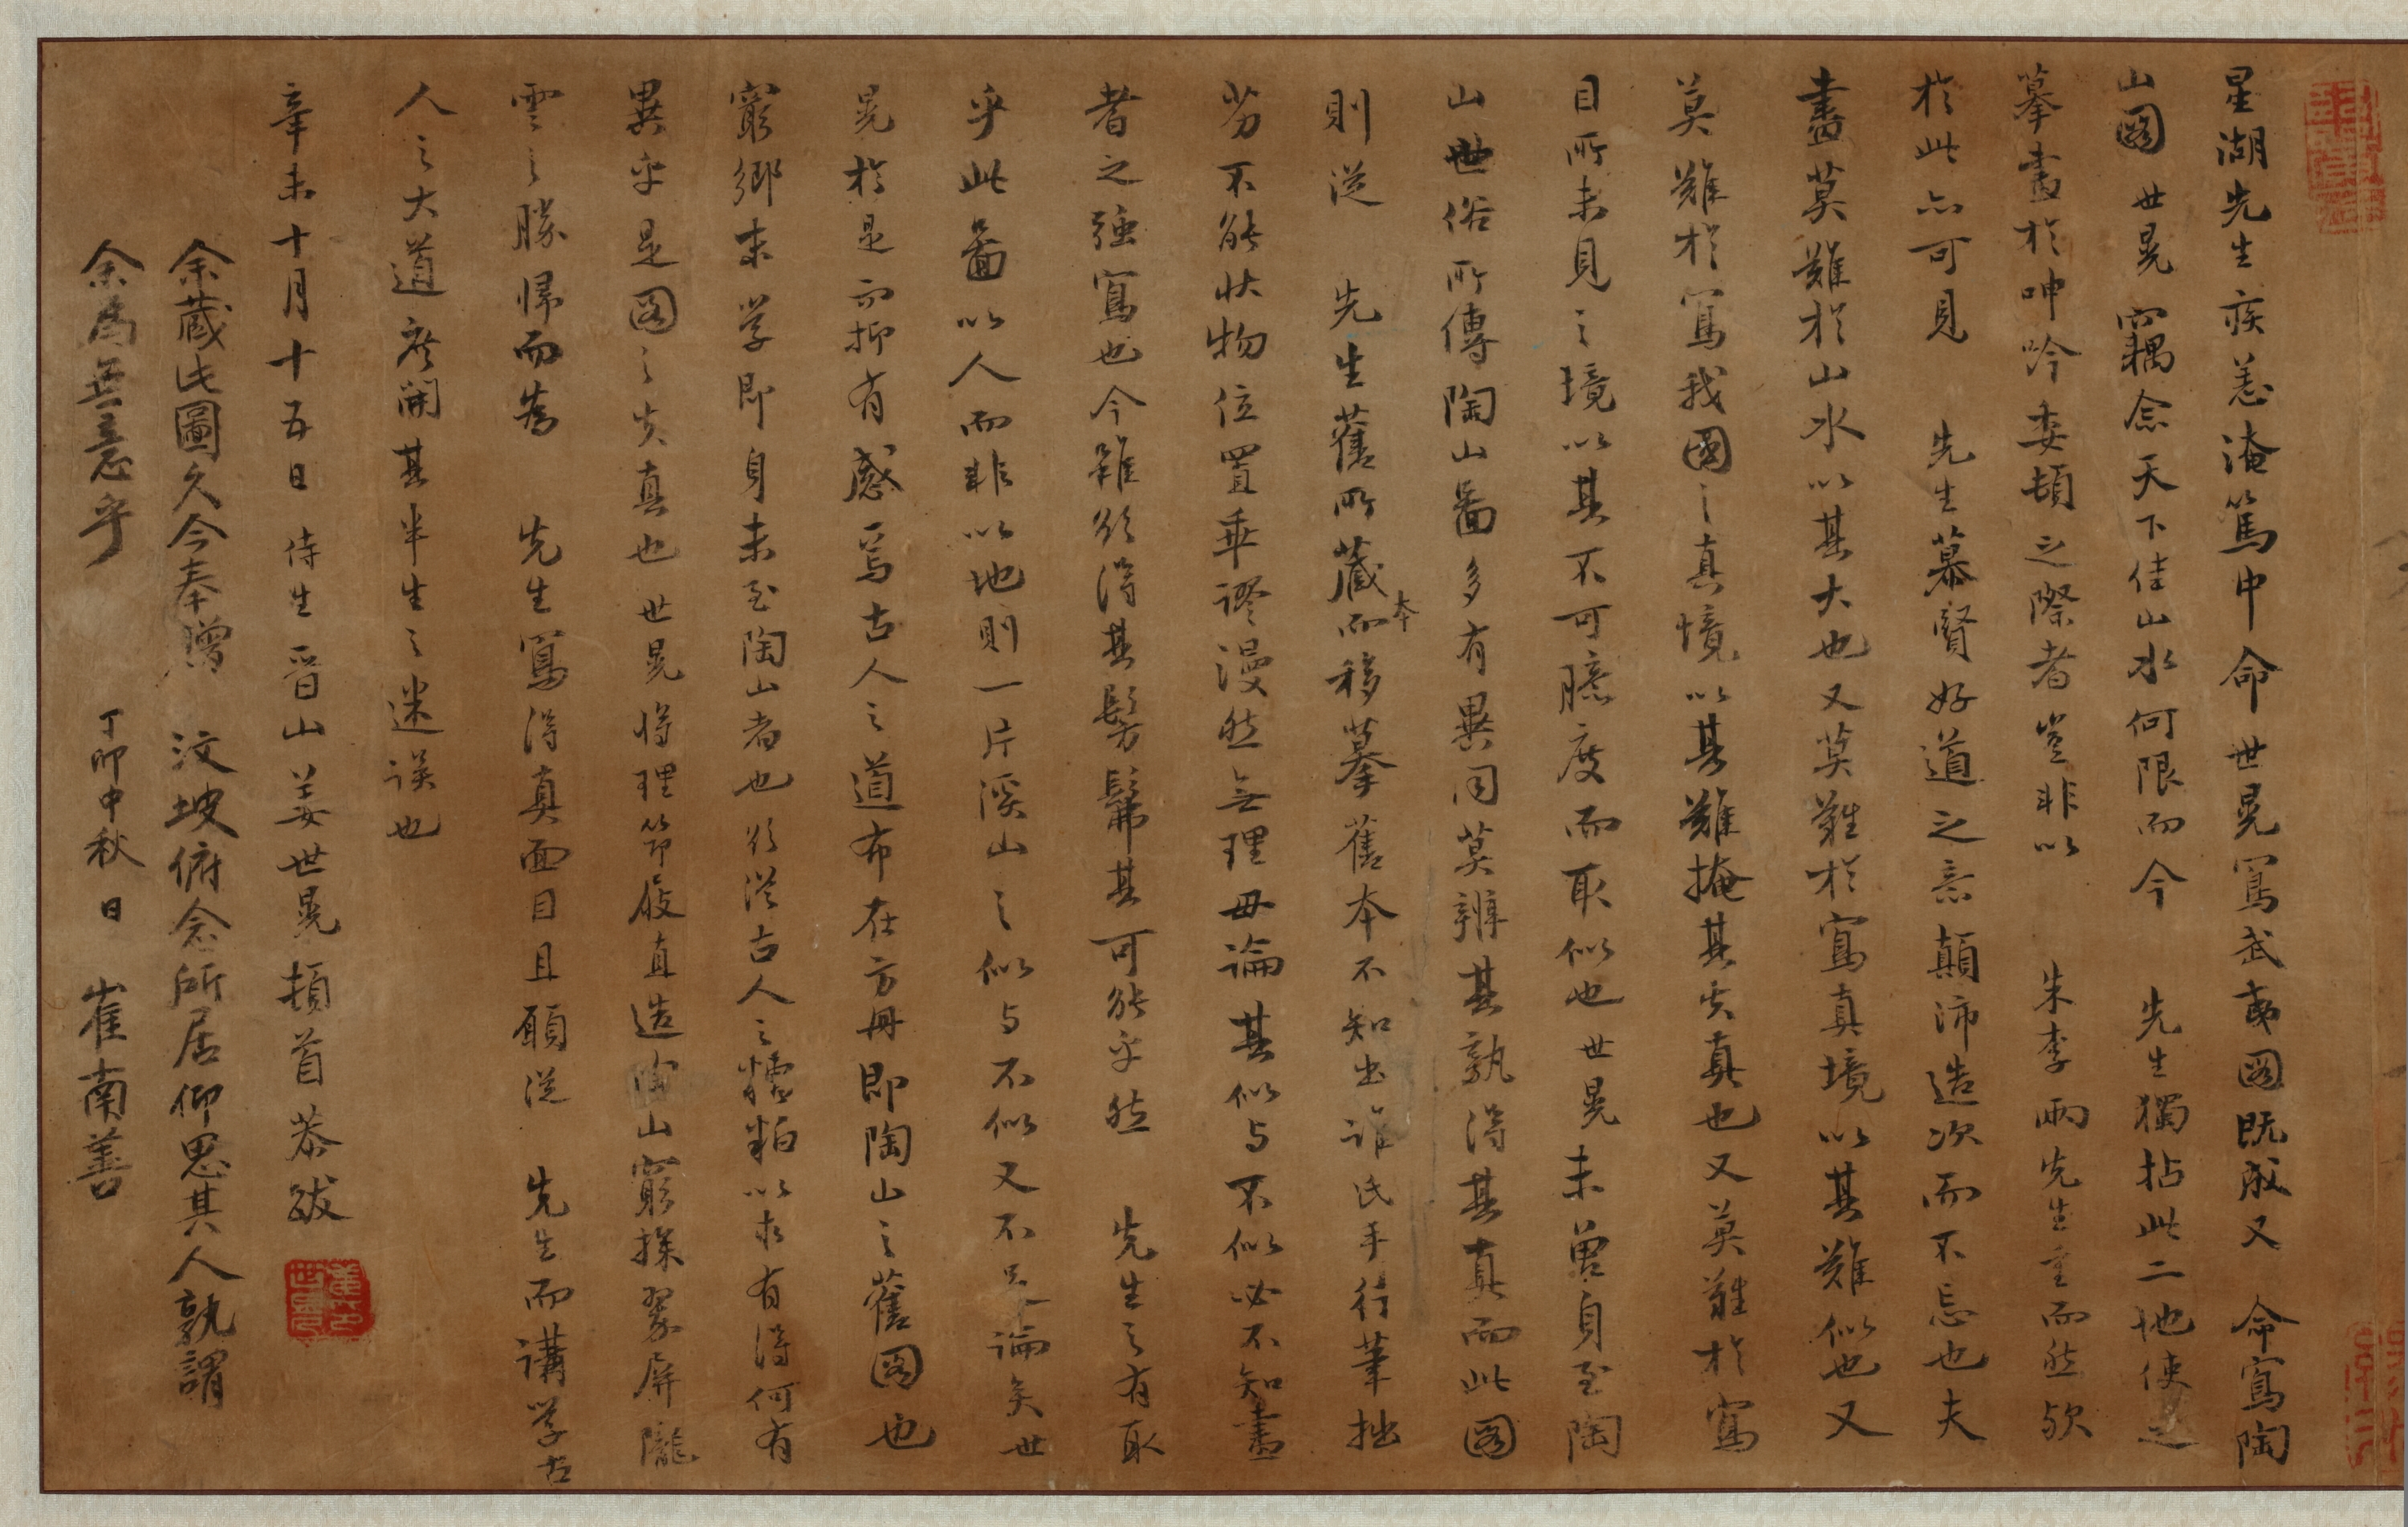 星湖先生疾恙淹篤中命世晃寫武夷図既成又 命寫陶
山図 世晃竊念天下佳山水何限而今 先生獨拈此二地使之
摹畵於呻吟委頓之際者豈非以 朱李兩先生重而然歟
於此亦可見 先生慕賢好道之意顛沛造次而不忘也夫
畵莫難於山水以其大也又莫難於寫真境以其難似也又
莫難於寫我國之真境以其難掩其失真也又莫難於寫
目所未見之境以其不可臆度而取似也世晃未曽身至陶
山世俗所傳陶山啚多有異同莫辨其孰得其真而此図
則從 先生舊所蔵本而移摹舊本不知出誰氏手行筆拙
劣不能状物位置乖謬漫然無理毋論其似与不似必不知畵
者之強寫也今雖欲得其髣髴其可能乎然 先生之有取
乎此啚以人而非以地則一片溪山之似与不似又不足論矣世
晃於是而抑有感焉古人之道布在方冊即陶山之舊図也
窮鄉末学即身未至陶山者也欲從古人之糟粕以求有得何有
異乎是図之失真也 世晃將理笻屐直造陶山窮探翠屏隴
雲之勝帰而為 先生寫得真面目且願從 先生而講学古
人之大道庶開其半生之迷误也
辛未十月十五日 侍生晋山姜世晃頓首恭跋
余蔵此圖久今奉贈 汶坡俯念所居仰思其人孰謂
余為無意乎 丁卯中秋日 崔南善